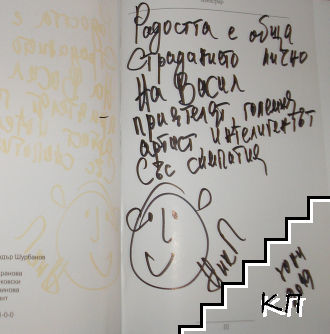 Радостта е обща
Страданието лично
На Васил
приятелят, големия
артист интелигентът
Със симпатия
ндър Шурбанов
ранова
ковски
инова
ит
1-0-0
КП